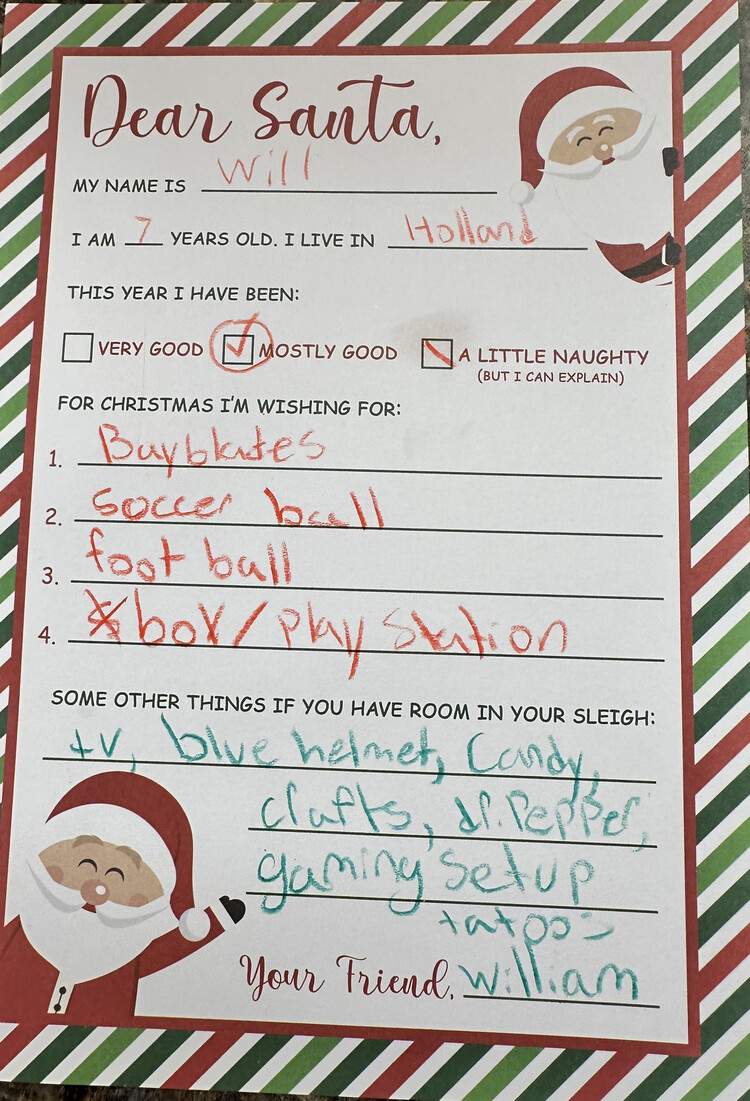 Dear Santa,
MY NAME IS Will
I AM 7 YEARS OLD. I LIVE IN Holland
THIS YEAR I HAVE BEEN:
VERY GOOD MOSTLY GOOD A LITTLE NAUGHTY
(BUT I CAN EXPLAIN)
FOR CHRISTMAS I'M WISHING FOR:
1. Bayblates
2. soccer ball
3. foot ball
4. Xbox/play Station
SOME OTHER THINGS IF YOU HAVE ROOM IN YOUR SLEIGH:
tv, blue helmet, Candy,
crafts, dr. Pepper,
gaming setup
tatoos
Your Friend, william